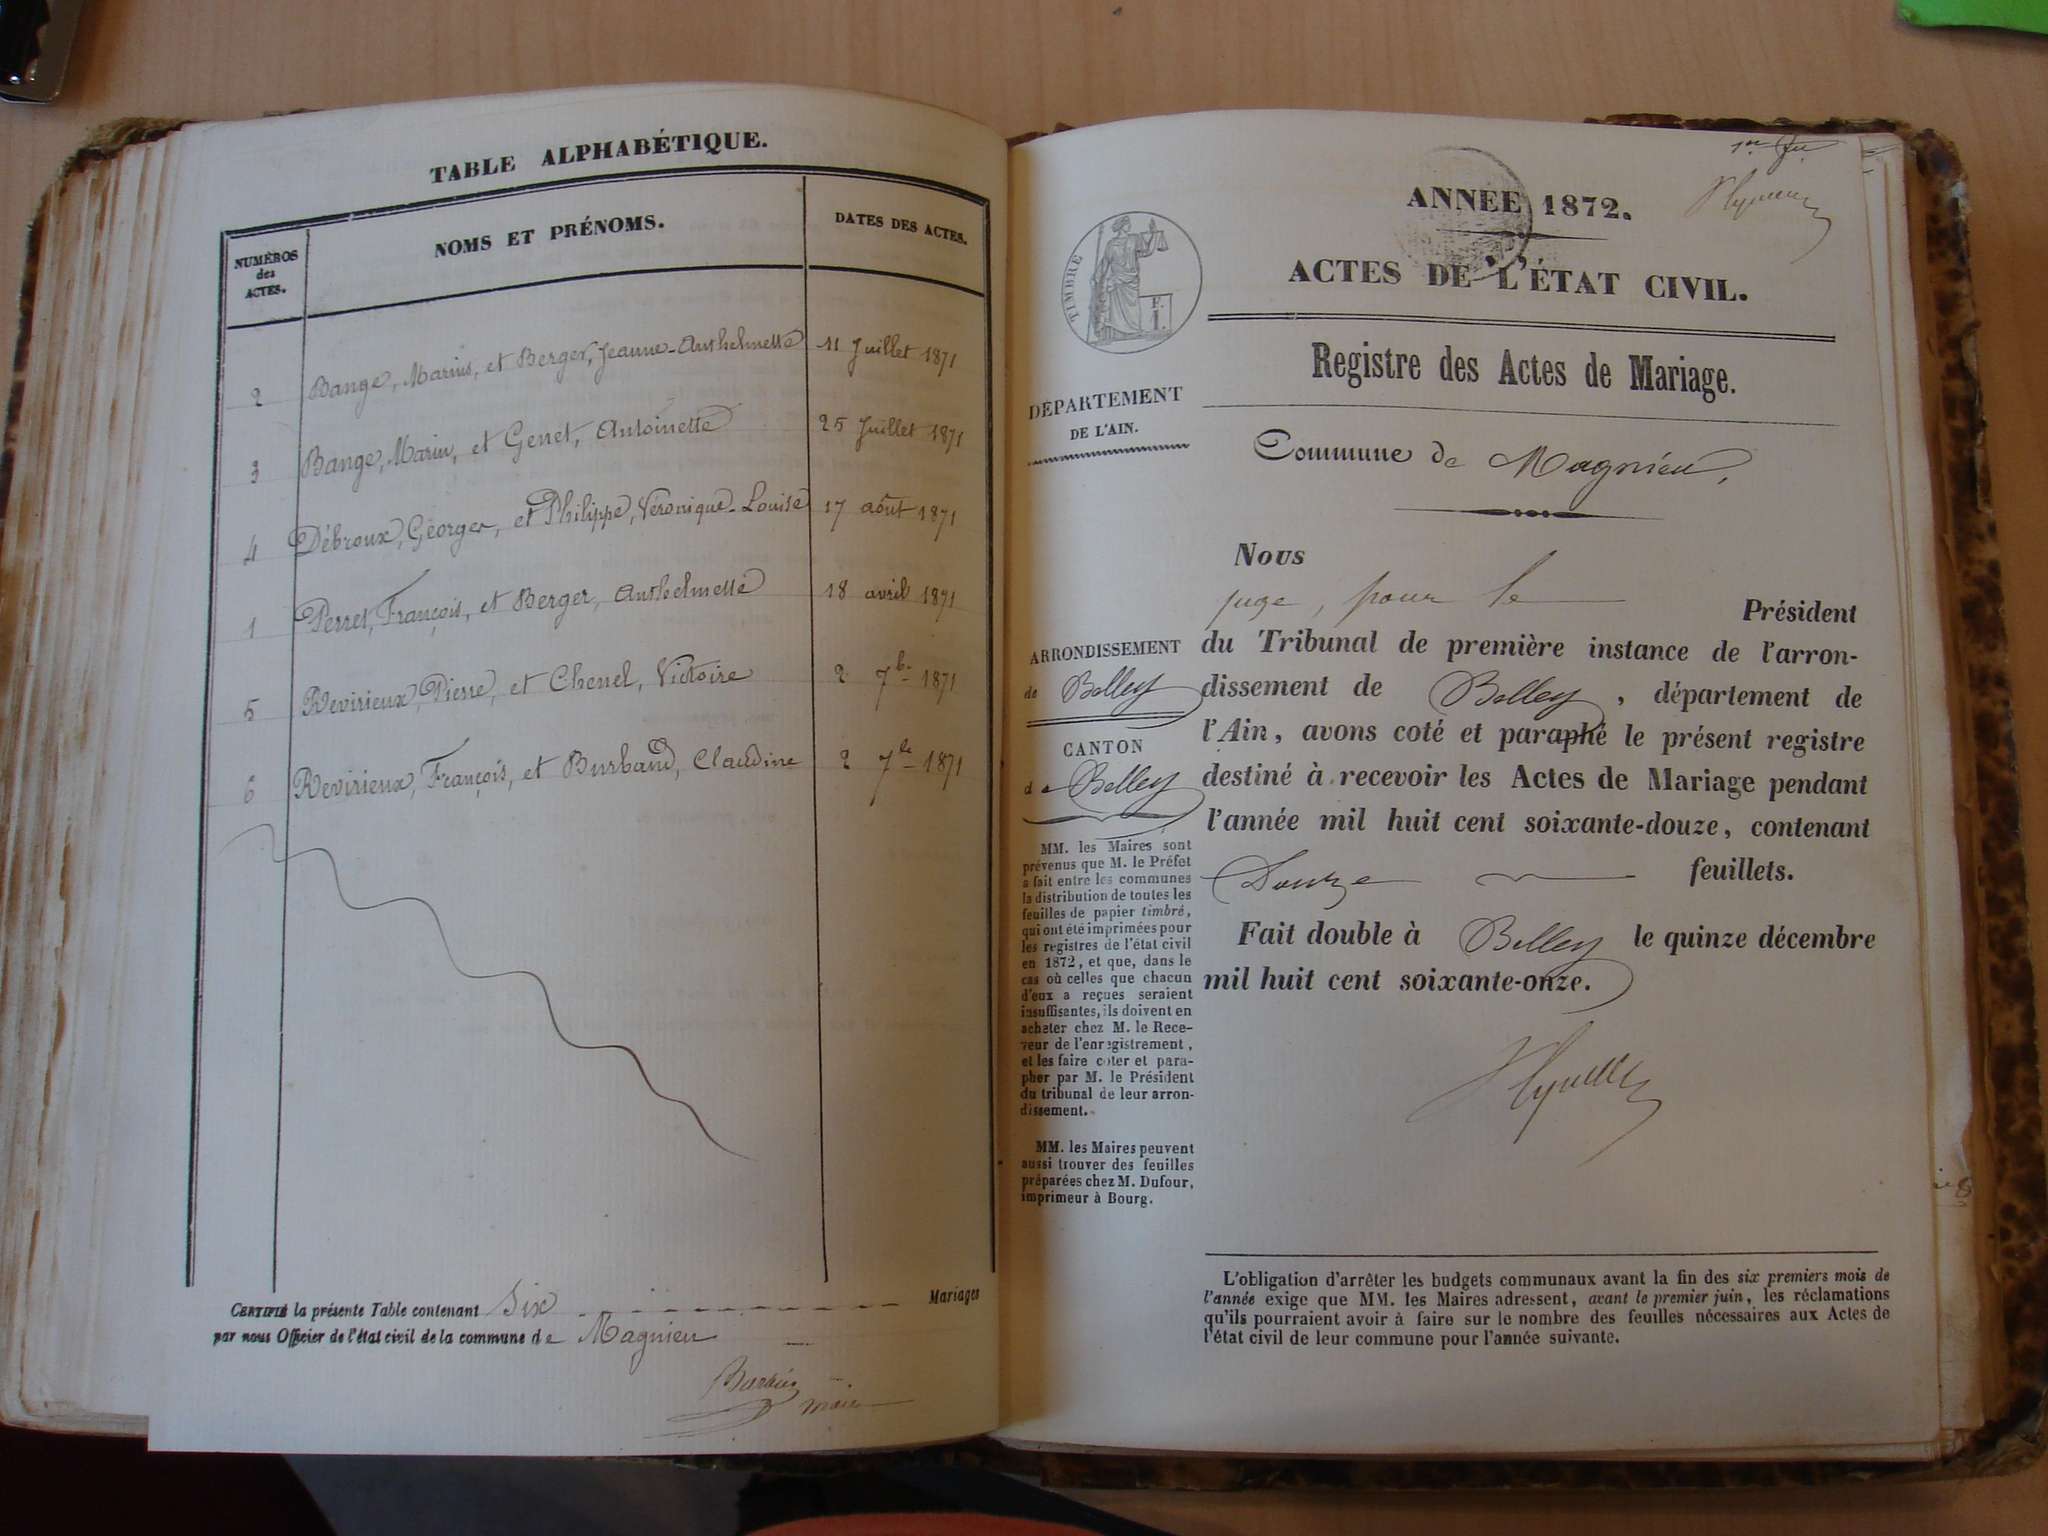 TABLE ALPHABÉTIQUE.
NUMÉROS
des
ACTES.
NOMS ET PRÉNOMS.
DATES DES ACTES.
2 Bange, Marius, et Berger, Jeanne-Anthelmette 11 Juillet 1871
3 Bange, Marin, et Genet, Antoinette 25 Juillet 1871
4 Débroux, Georges, et Philippe, Véronique-Louise 17 août 1871
1 Perret, François, et Berger, Anthelmette 18 avril 1871
5 Revirieux, Pierre, et Chenel, Victoire 2 7bre 1871
6 Revirieux, François, et Burband, Claudine 2 7bre 1871
CERTIFIÉ la présente Table contenant Six Mariages
par nous Officier de l'état civil de la commune de Magnieu
maire
ANNÉE 1872.
ACTES DE L'ÉTAT CIVIL.
TIMBRE
F.
I.
Registre des Actes de Mariage.
DÉPARTEMENT
DE L'AIN.
Commune de Magnieu,
Nous
juge, pour le Président
ARRONDISSEMENT
de Belley
CANTON
de Belley
du Tribunal de première instance de l'arron-
dissement de Belley, département de
l'Ain, avons coté et paraphé le présent registre
destiné à recevoir les Actes de Mariage pendant
l'année mil huit cent soixante-douze, contenant
Douze feuillets.
Fait double à Belley le quinze décembre
mil huit cent soixante-onze.
MM. les Maires sont
prévenus que M. le Préfet
a fait entre les communes
la distribution de toutes les
feuilles de papier timbré,
qui ont été imprimées pour
les registres de l'état civil
en 1872, et que, dans le
cas où celles que chacun
d'eux a reçues seraient
insuffisantes, ils doivent en
acheter chez M. le Rece-
veur de l'enregistrement,
et les faire coter et para-
pher par M. le Président
du tribunal de leur arron-
dissement.
MM. les Maires peuvent
aussi trouver des feuilles
préparées chez M. Dufour,
imprimeur à Bourg.
L'obligation d'arrêter les budgets communaux avant la fin des six premiers mois de
l'année exige que MM. les Maires adressent, avant le premier juin, les réclamations
qu'ils pourraient avoir à faire sur le nombre des feuilles nécessaires aux Actes de
l'état civil de leur commune pour l'année suivante.